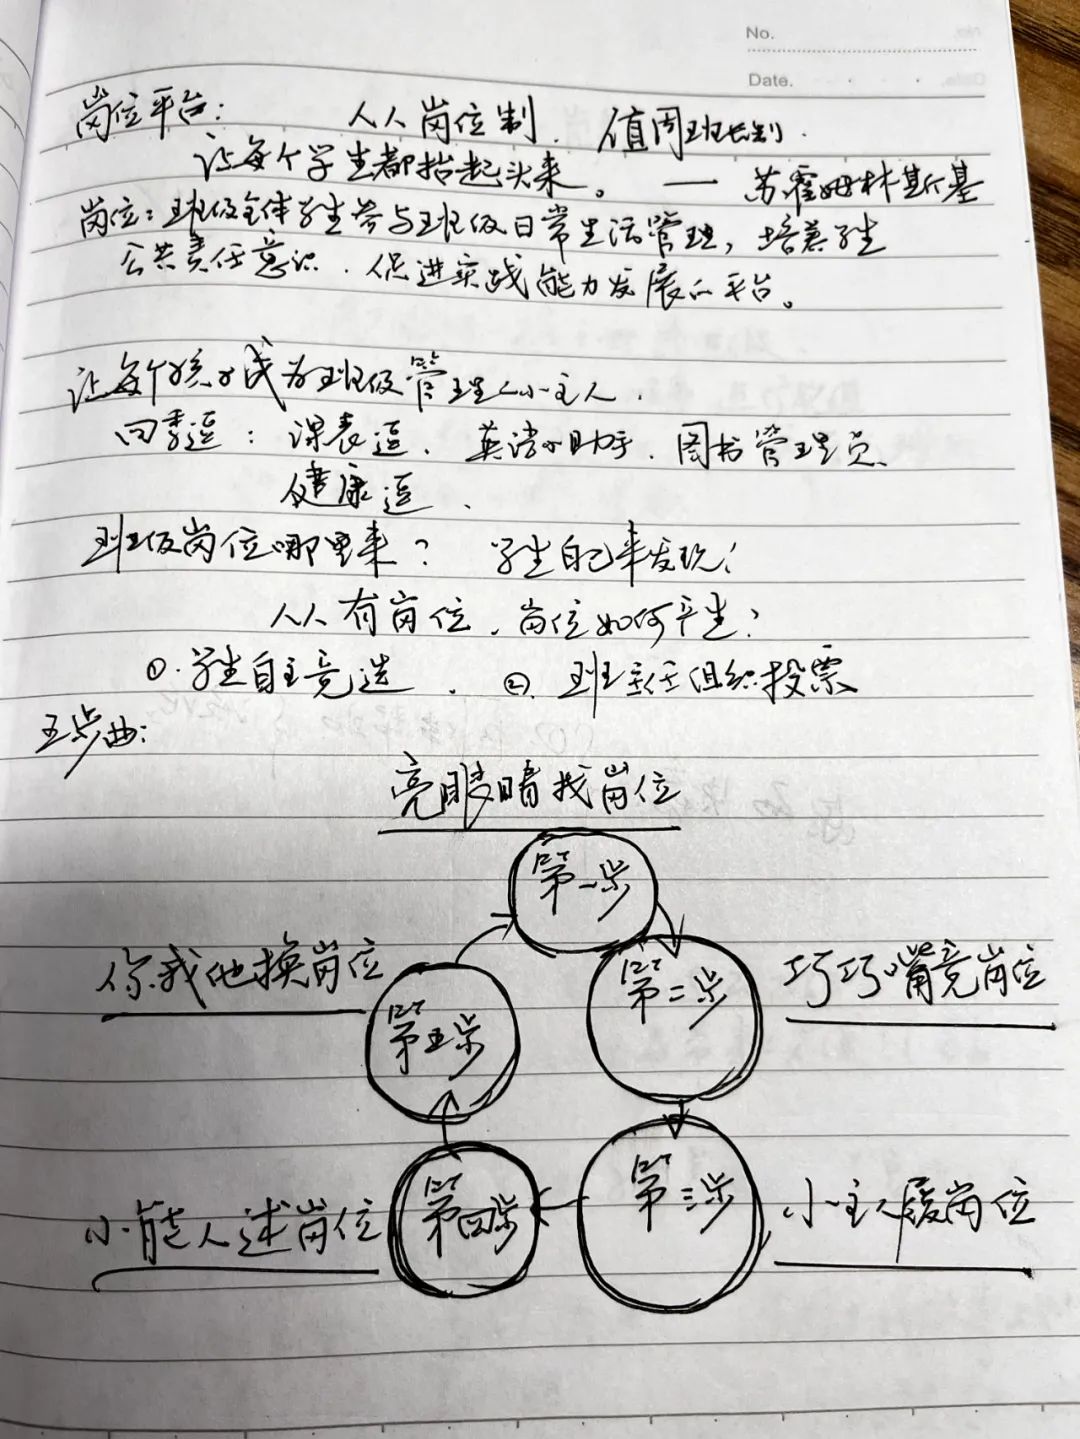 No.
Date.
岗位平台: 人人岗位制、值周班长制.
让每个学生都抬起头来。 — 苏霍姆林斯基
岗位:班级全体学生参与班级日常生活管理,培养学生
公共责任意识、促进实践能力发展的平台。
让每个孩子成为班级管理小主人.
四季逗:课表逗、英语小助手、图书管理员、
健康逗、
班级岗位哪里来? 学生自己来发现!
人人有岗位、岗位如何产生?
①.学生自主竞选、②.班主任组织投票
五步曲:
亮眼睛找岗位
第一步
你我他换岗位
第二步
巧巧嘴竞岗位
第五步
小能人述岗位
第四步
第三步
小主人履岗位